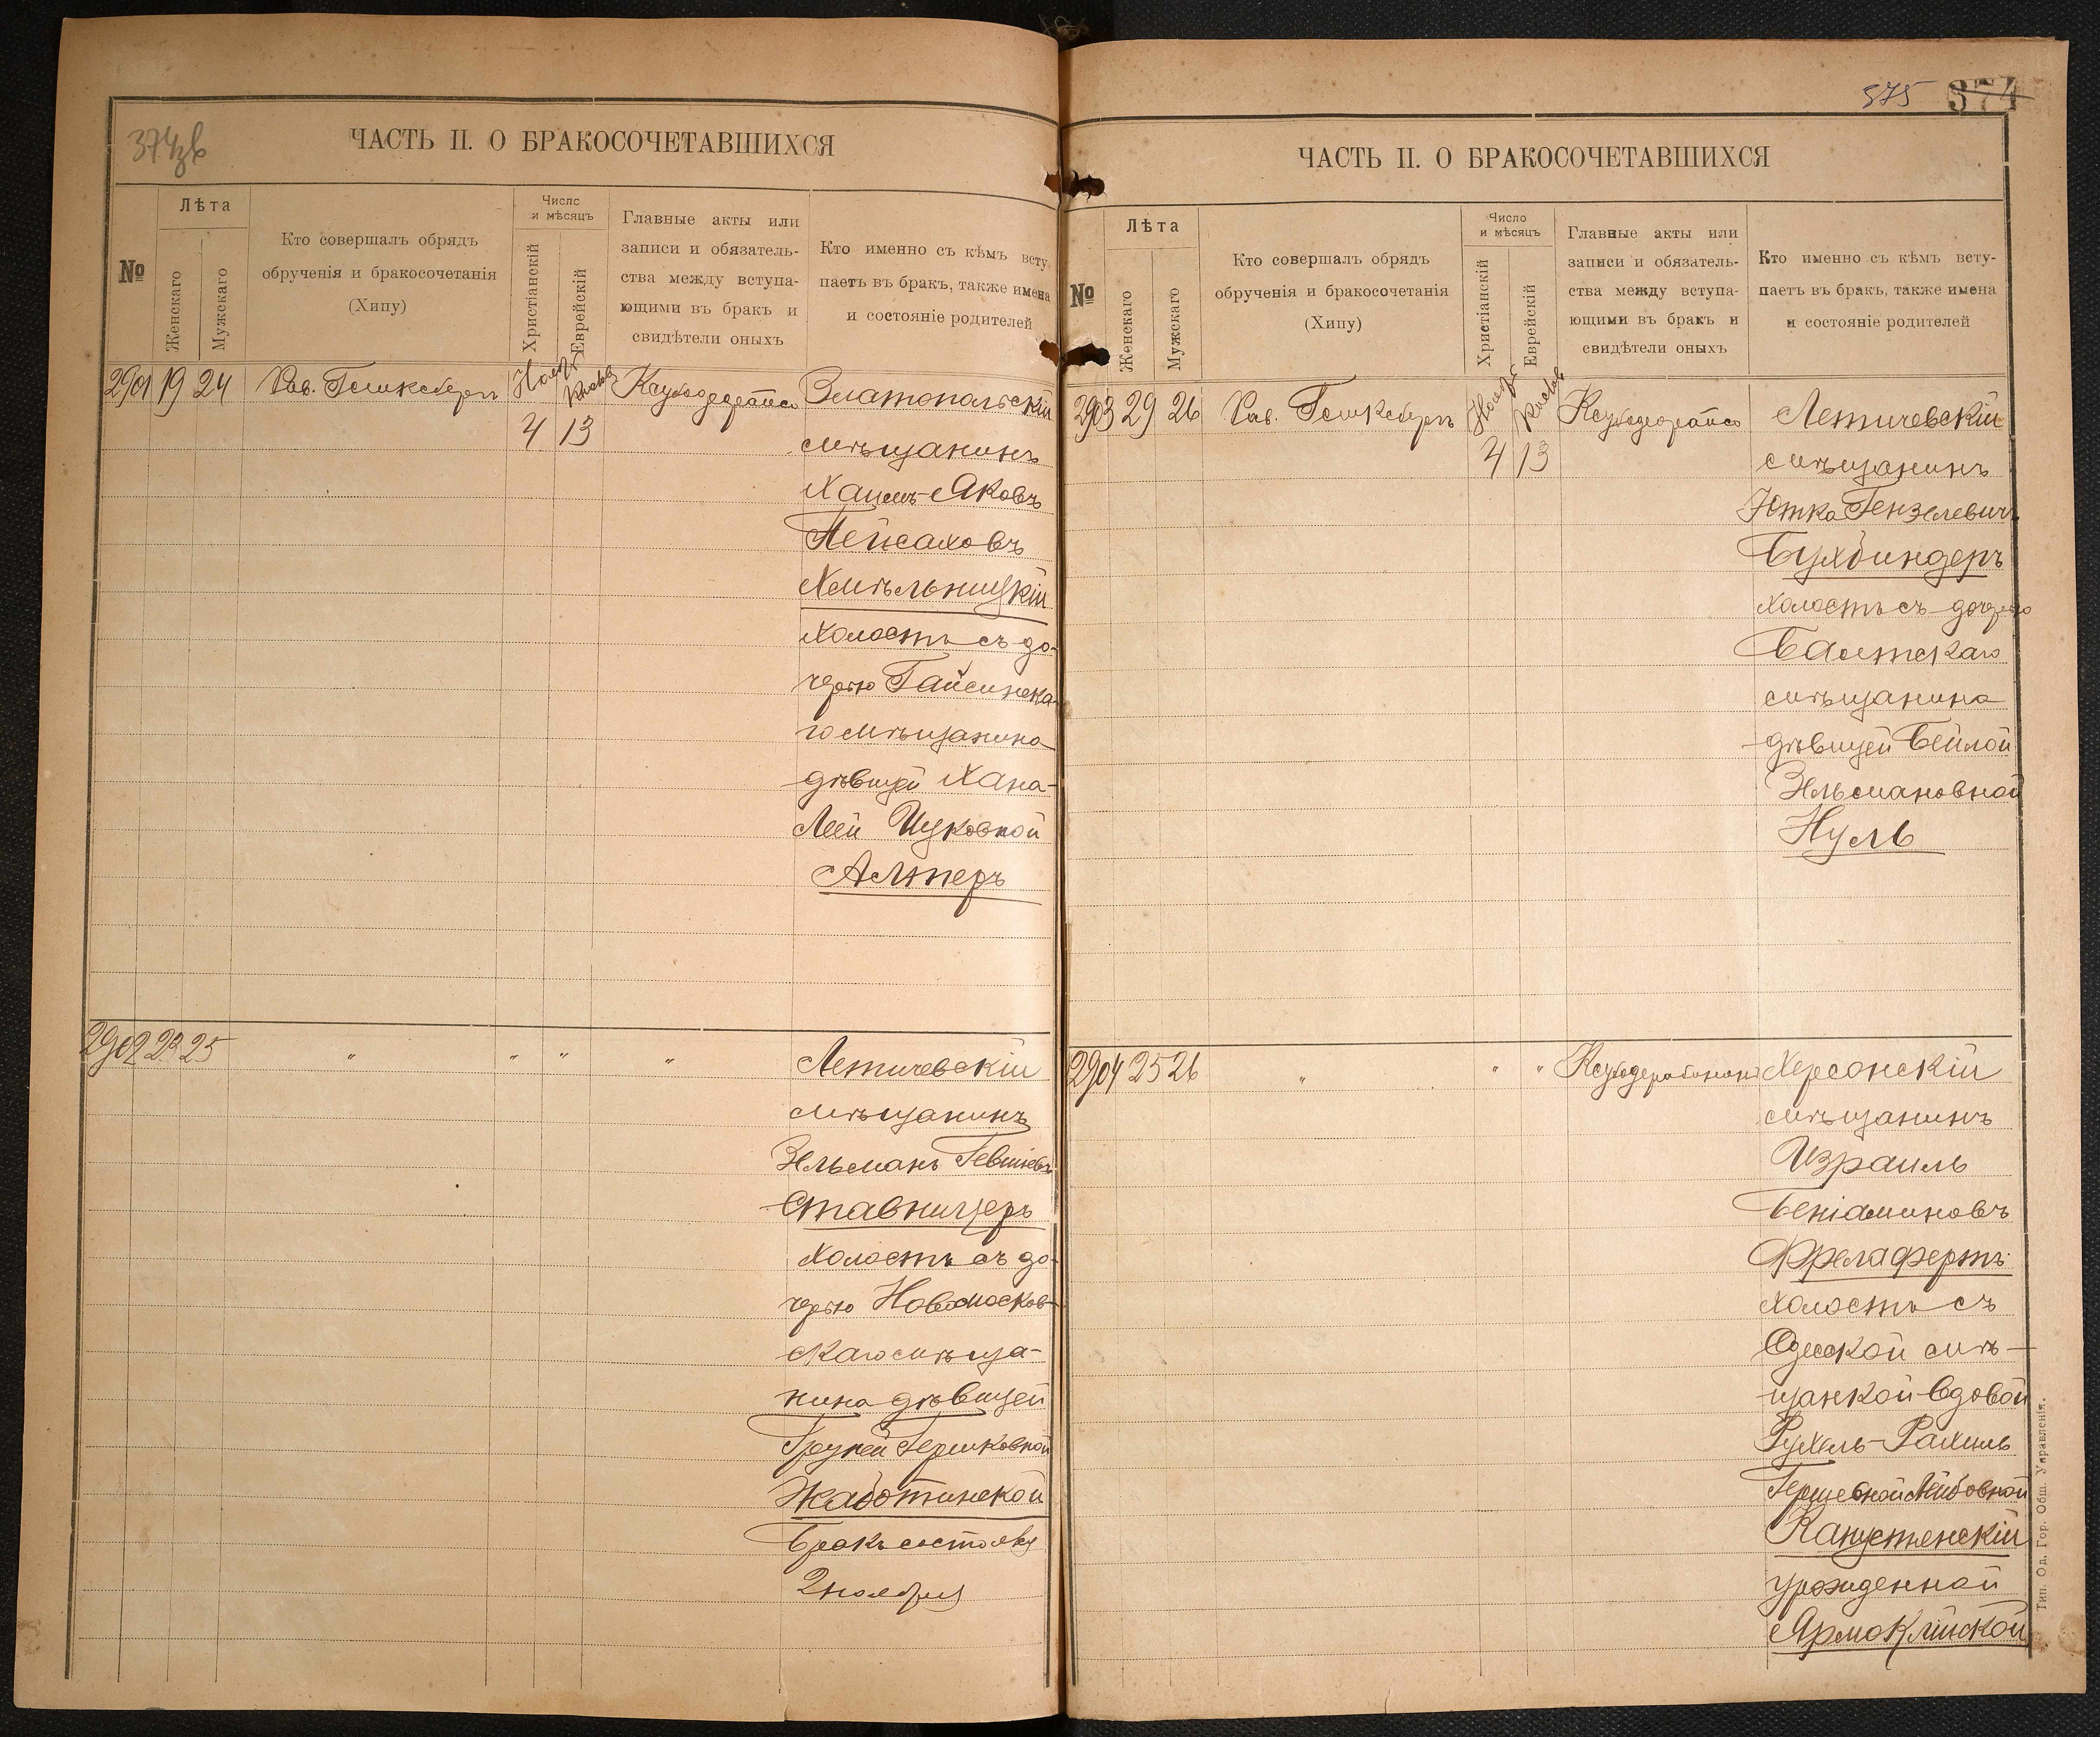 374зв
ЧАСТЬ II. О БРАКОСОЧЕТАВШИХСЯ
№
Лѣта
Женскаго
Мужскаго
Кто совершалъ обрядъ
обрученія и бракосочетанія
(Хипу)
Число
и мѣсяцъ
Христіанскій
Еврейскій
Главные акты или
записи и обязатель-
ства между вступа-
ющими въ бракъ и
свидѣтели оныхъ
Кто именно съ кѣмъ всту
паетъ въ бракъ, также имена
и состояніе родителей
2901 19 24 Рав. Нояб Кислев Златопольскій
4 13 мѣщанинъ
Хаимъ-Яковъ
Пейсаховъ
Хмѣльницкій
холостъ съ до-
черью Гайсинска-
го мѣщанина
дѣвицей Хана-
Леей Ицковной
Алтеръ
2902 23 25 " " " " Летичевскій
мѣщанинъ
Зельманъ
Ставницеръ
холостъ съ до-
черью Новомосков-
скаго мѣща-
нина дѣвицей
Груней Гершковной
Жаботинской
Бракъ состоялся
2 ноября
575 374
ЧАСТЬ II. О БРАКОСОЧЕТАВШИХСЯ
№
Лѣта
Женскаго
Мужскаго
Кто совершалъ обрядъ
обрученія и бракосочетанія
(Хипу)
Число
и мѣсяцъ
Христіанскій
Еврейскій
Главные акты или
записи и обязатель-
ства между вступа-
ющими въ бракъ и
свидѣтели оныхъ
Кто именно съ кѣмъ всту-
паетъ въ бракъ, также имена
и состояніе родителей
2903 29 26 Рав. Нояб Кислев Летичевскій
4 13 мѣщанинъ
Ютка Гензелевичъ
Бухбиндеръ
холостъ съ дочерью
Балтскаго
мѣщанина
дѣвицей Бейлой
Зельмановной
Нуль
2904 25 26 " " " Херсонскій
мѣщанинъ
Израиль
Беніаминовъ
холостъ съ
Одесской мѣ-
щанкой вдовой
Рухель-Рахиль
Гершевной Лейбовной
Капустенскій
урожденной
Ярмоклийской
Тип. Од. Гор. Общ. Управленія.